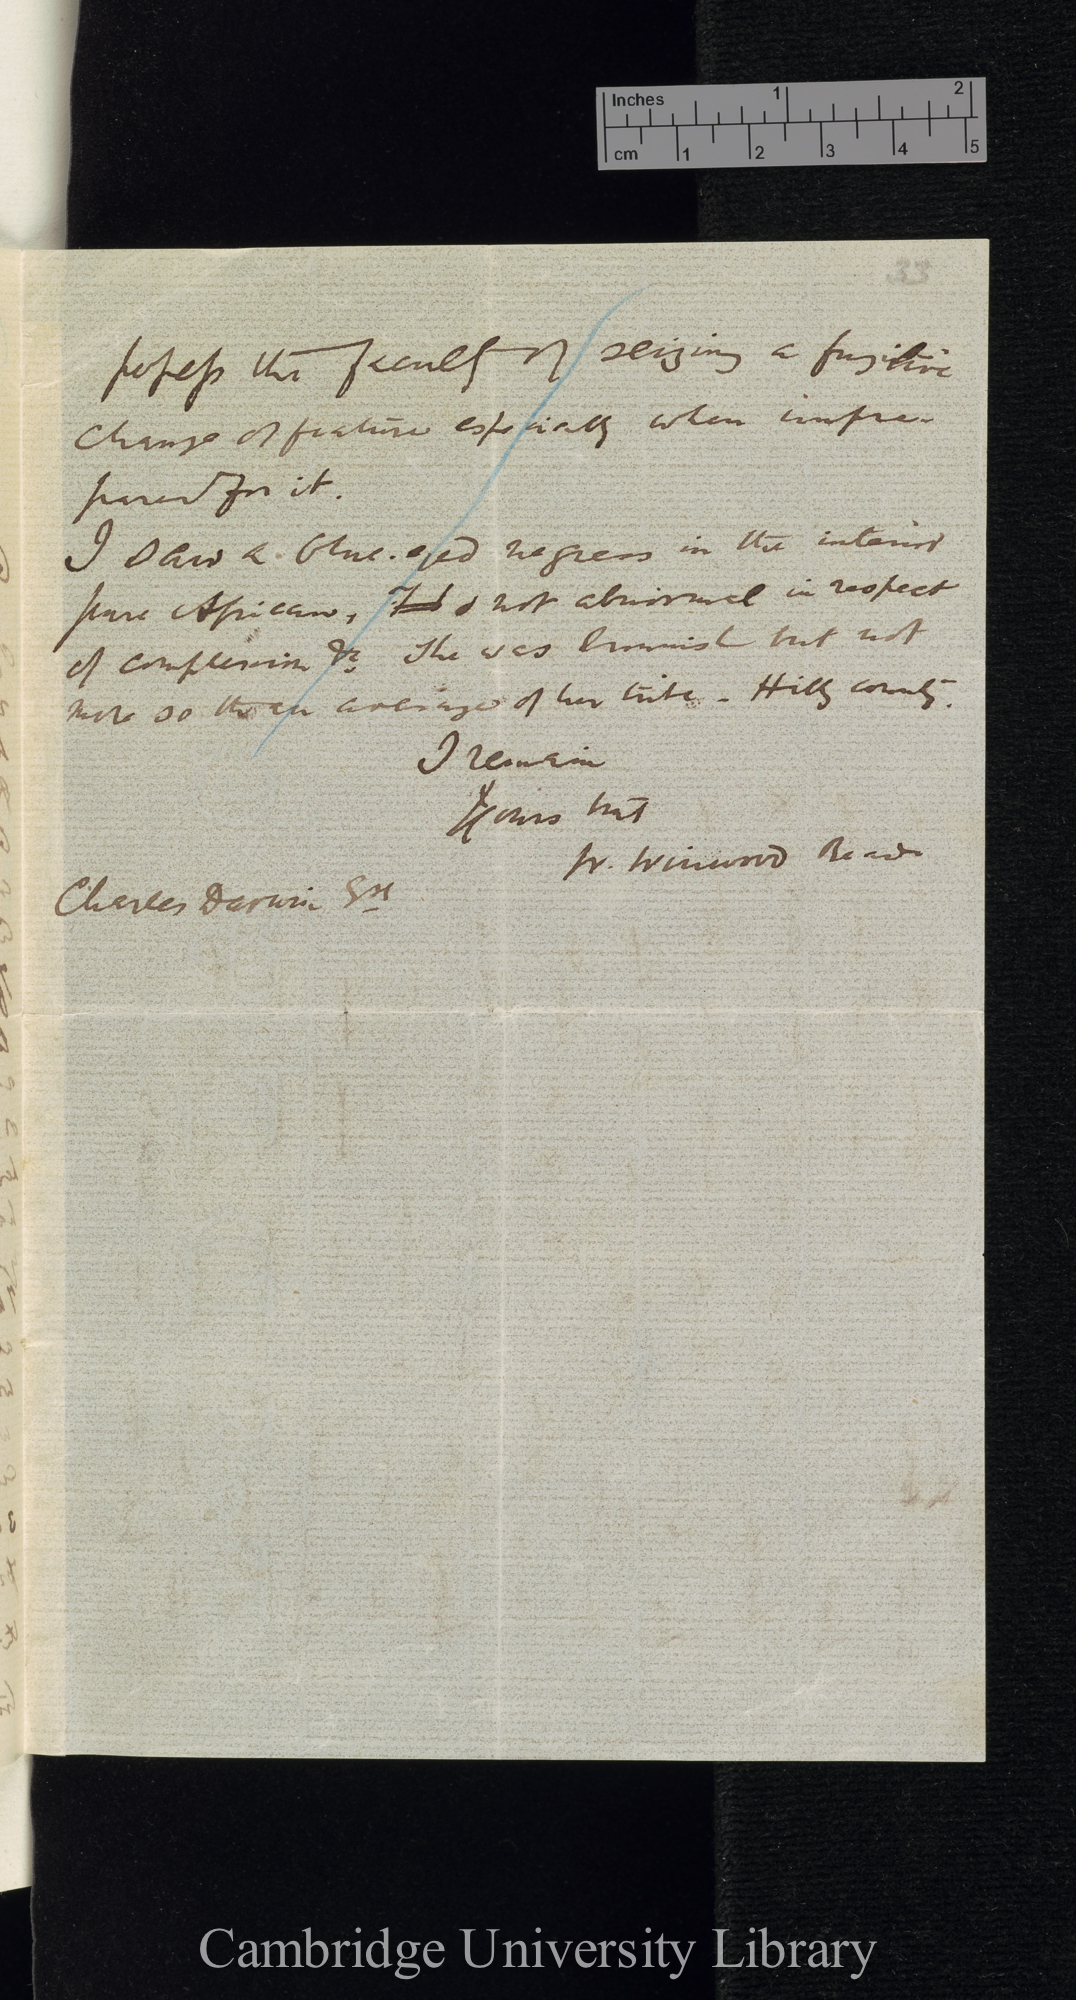 Inches 1 2
cm 1 2 3 4 5
33
possess the faculty of seizing a fugitive
change of feature especially when unpre-
pared for it.
I saw a blue-eyed negress in the interior
pure African, not abnormal in respect
of complexion &c She was brownish but not
more so than average of her tribe - Hilly country.
I remain
Yours truly
W. Winwood Reade
Charles Darwin Esq
Cambridge University Library